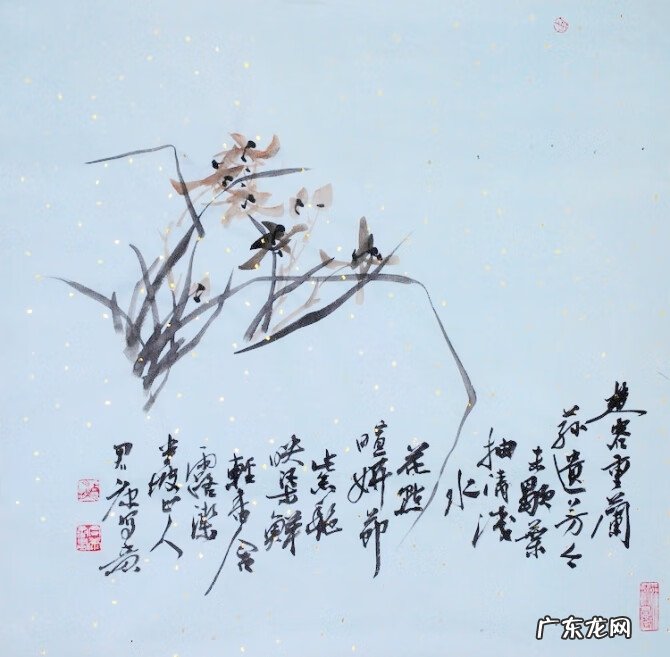 楚客重蘭
荪遺芳今
未歇葉
抽清淺
水
花點
暄妍節
紫艷
映渠鮮
輕香含
露潔
坡山人
广东龙网